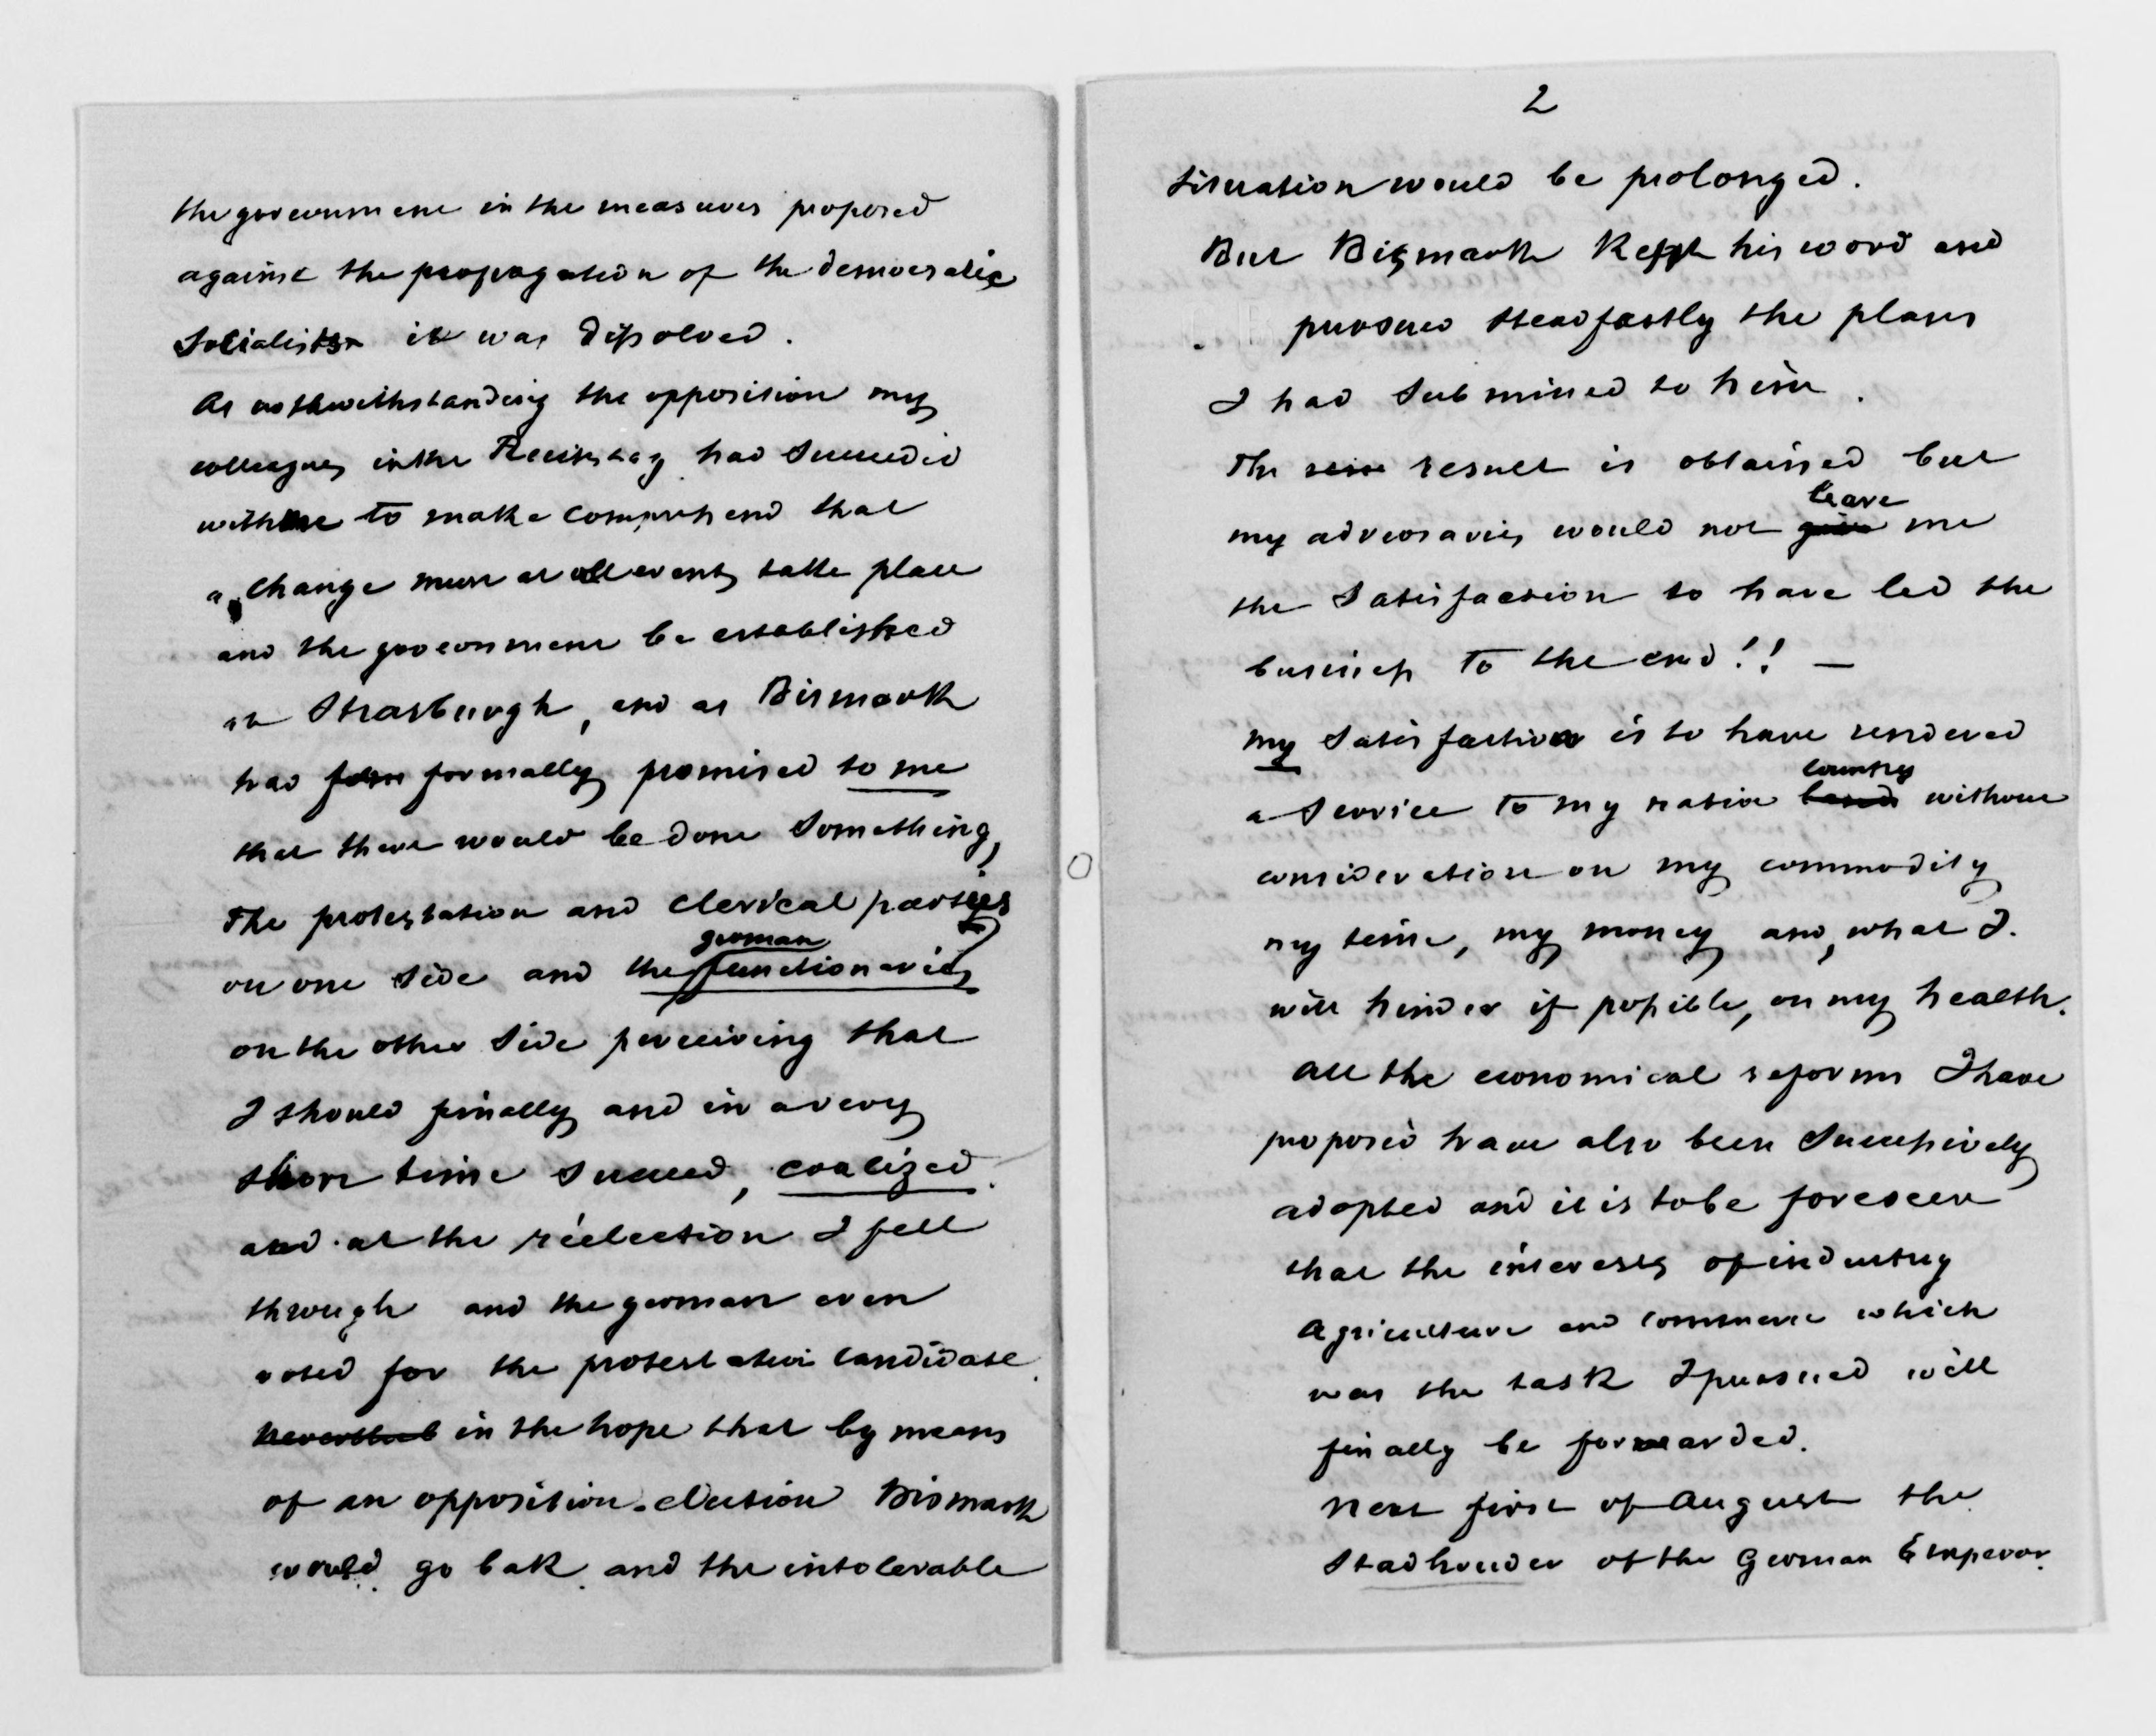 the government in the measures proposed
against the propagation of the democratic
Socialists it was dissolved.
As nothwithstanding the opposition my
colleagues in the Reichstag had succeeded
with me to make comprehend that
a change must at all events take place
and the government be established
at Strasburgh, and as Bismark
had form formally promised to me
that there would be done something,
The protestation and clerical parties
german
on one side and the functionaries
on the other side perceiving that
I should finally and in a very
short time succeed, coalized
and at the réelection I fell
through and the german even
voted for the protestation candidate
neverthel in the hope that by means
of an opposition-election Bismark
would go bak and the intolerable
2
situation would be prolonged.
But Bismark Kept his word and
pursued steadfastly the plans
I had submitted to him.
The result is obtained but
leave
my adversaries would not give me
the satisfaction to have led the
business to the end!! —
my satisfaction is to have rendered
country
a service to my native without
consideration on my commodity
my time, my money and, what I
will hinder if possible, on my health.
All the economical reforms I have
proposed have also been successively
adopted and it is to be foreseen
that the interests of industry
Agriculture and commerce which
was the task I pursued will
finally be forwarded.
Next first of August the
Stadhouder of the German Emperor